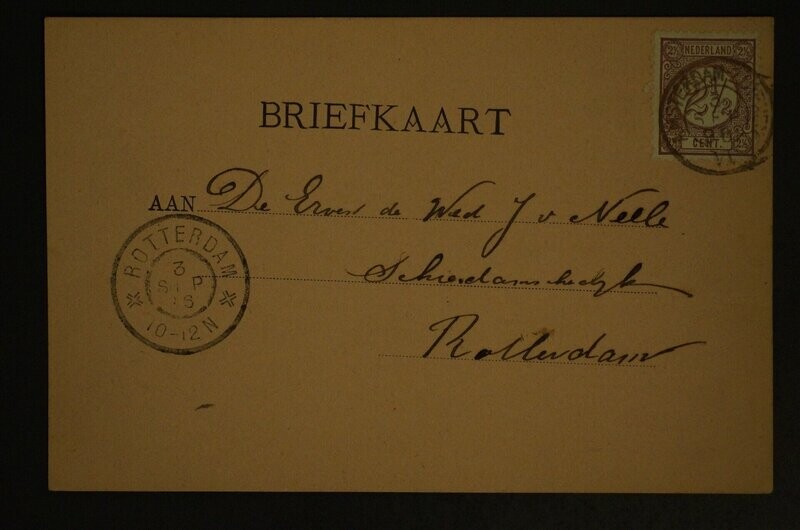 2½ NEDERLAND 2½
2½
CENT.
BRIEFKAART
AAN De Erven de Wed J v Nelle
Schiedamschedyk
Rotterdam
ROTTERDAM
3
SEP
10-12N